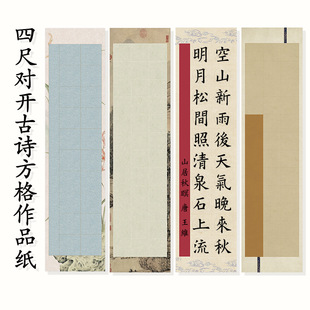 四尺对开古诗方格作品纸
空山新雨後天氣晚來秋
明月松間照清泉石上流
山居秋暝 唐 王維